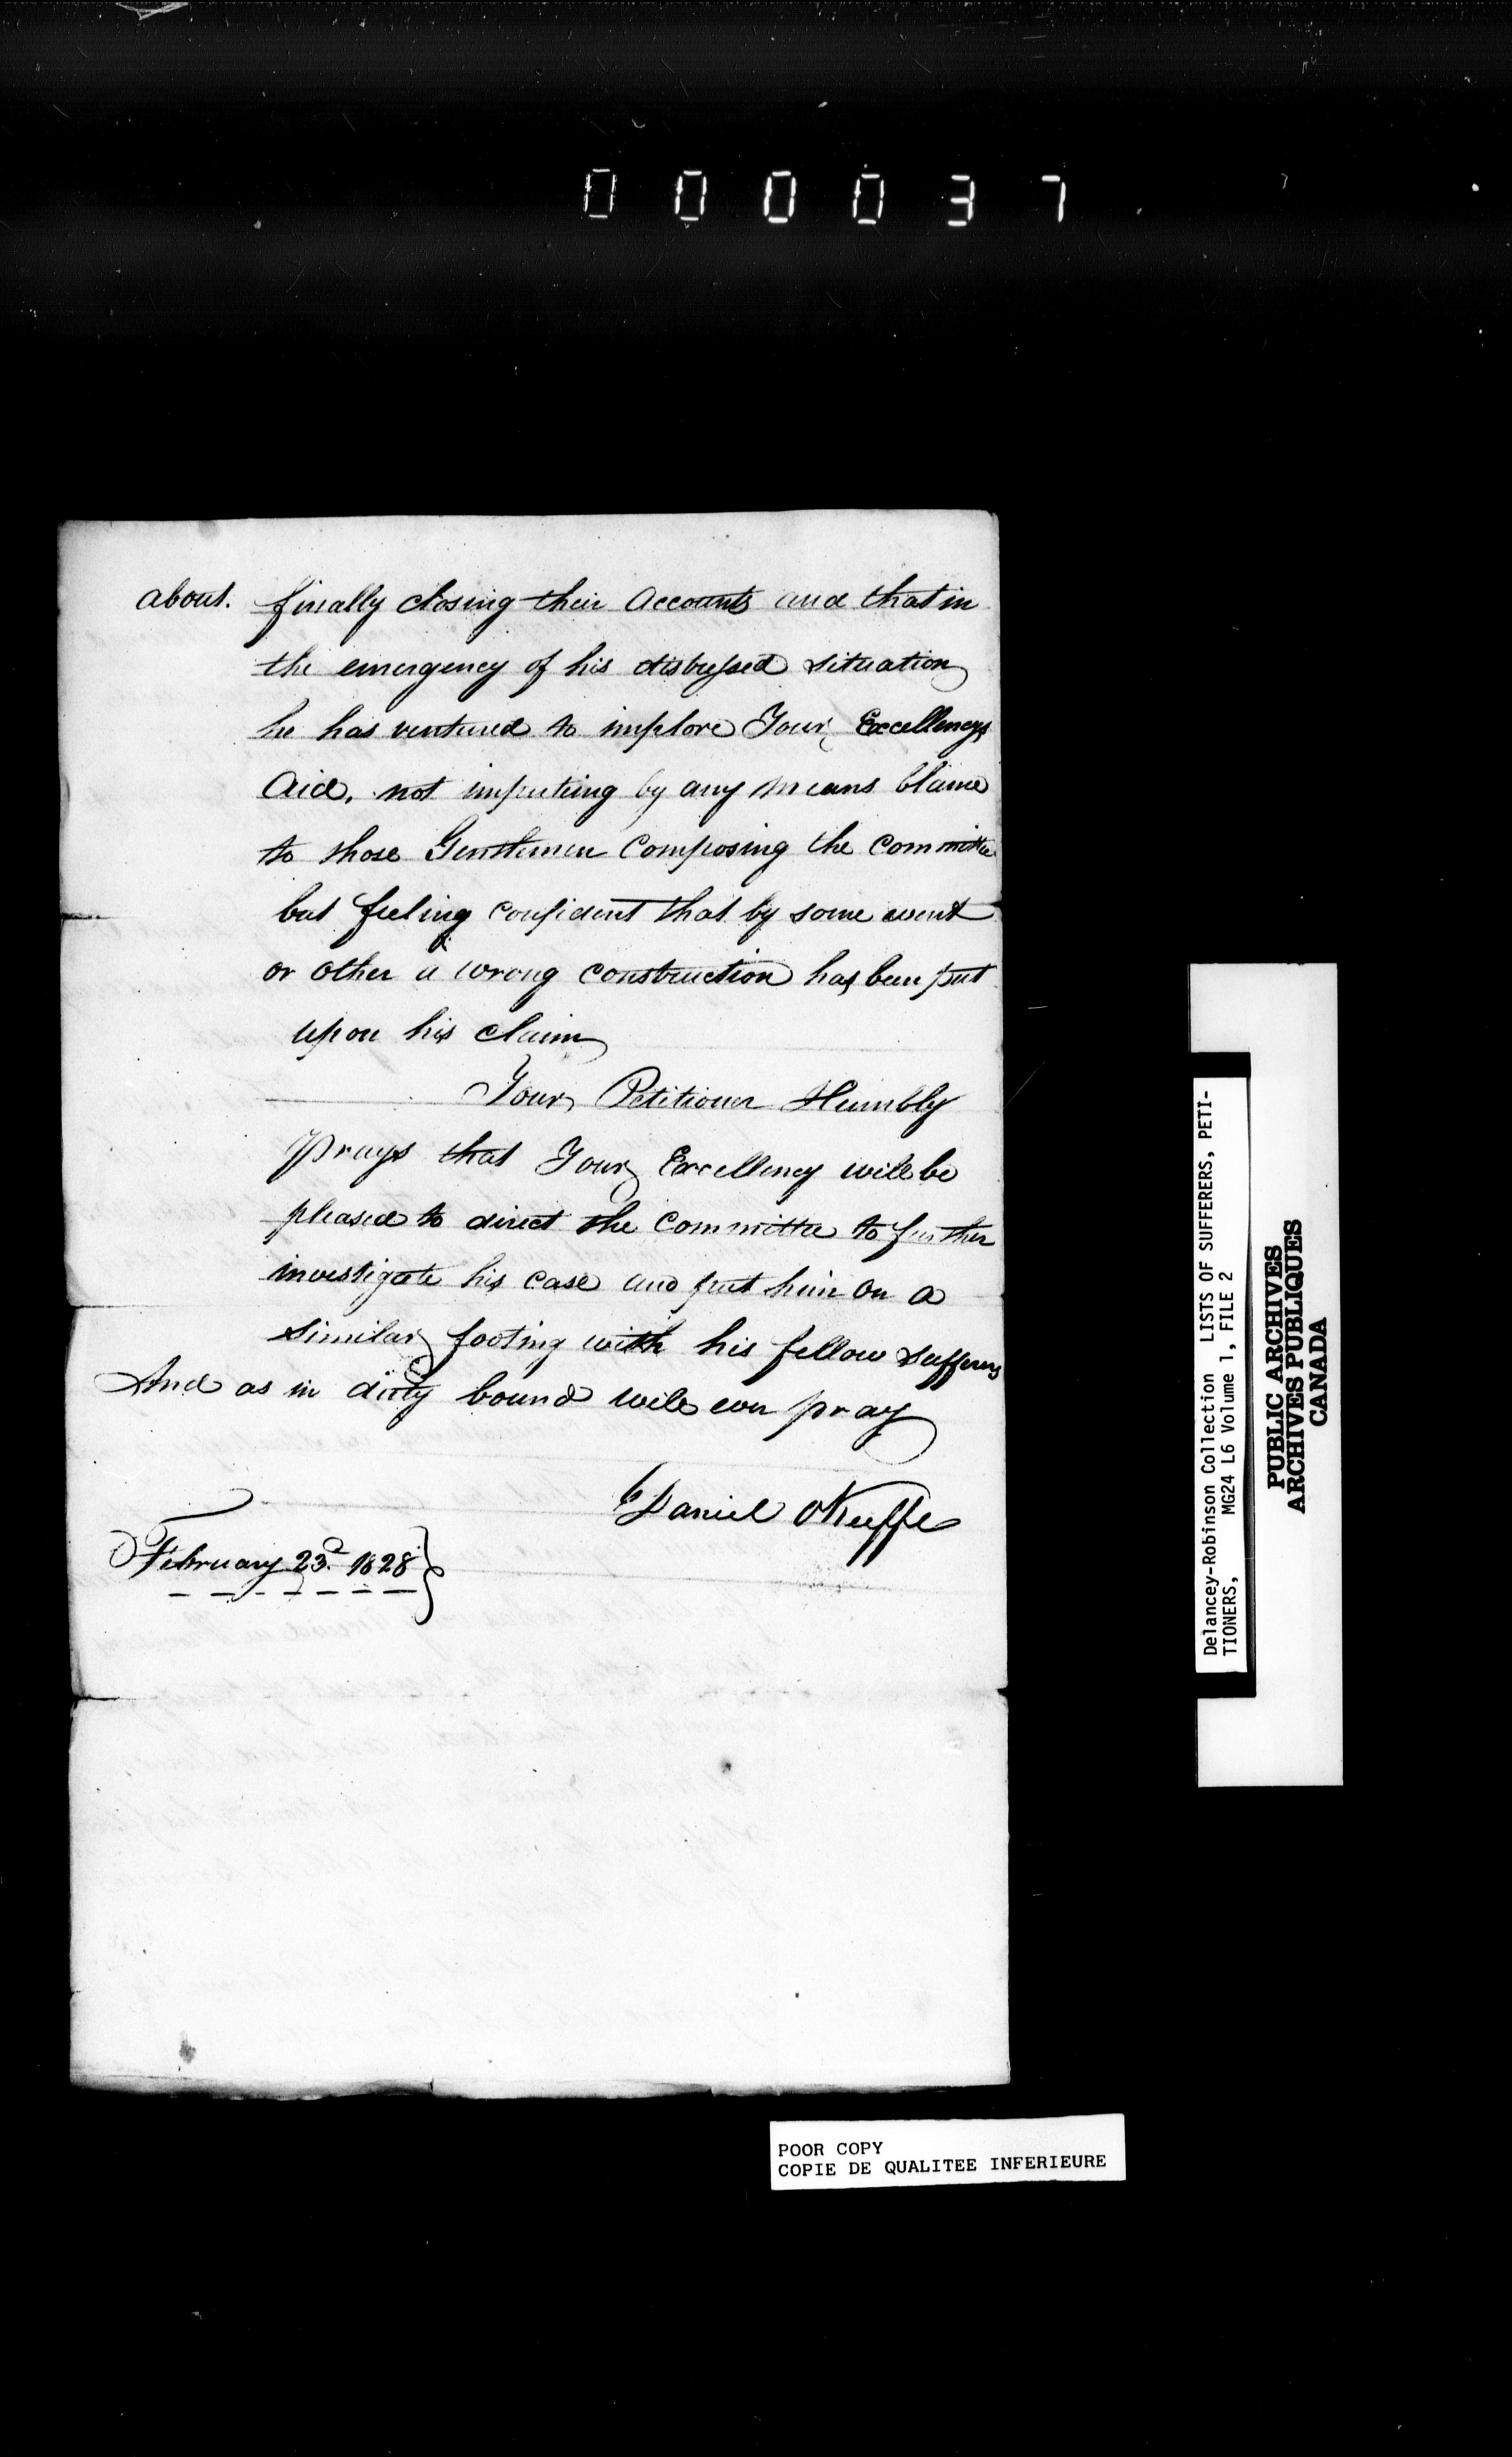 000037
about. finally closing their Accounts and that in
the emergency of his distressed situation
he has ventured to implore Your Excellencys
Aid, not imputing by any means blame
to those Gentlemen Composing the Committee
but feeling confident that by some event
or other a wrong construction has been put
upon his claim
Your Petitioner Humbly
prays that Your Excellency will be
pleased to direct the Committee to further
investigate his case and put him on a
similar footing with his fellow sufferers
And as in duty bound will ever pray
Daniel OKeeffe
February 23d. 1828
Delancey-Robinson Collection LISTS OF SUFFERERS, PETI-
TIONERS, MG24 L6 Volume 1, FILE 2
PUBLIC ARCHIVES
ARCHIVES PUBLIQUES
CANADA
POOR COPY
COPIE DE QUALITEE INFERIEURE